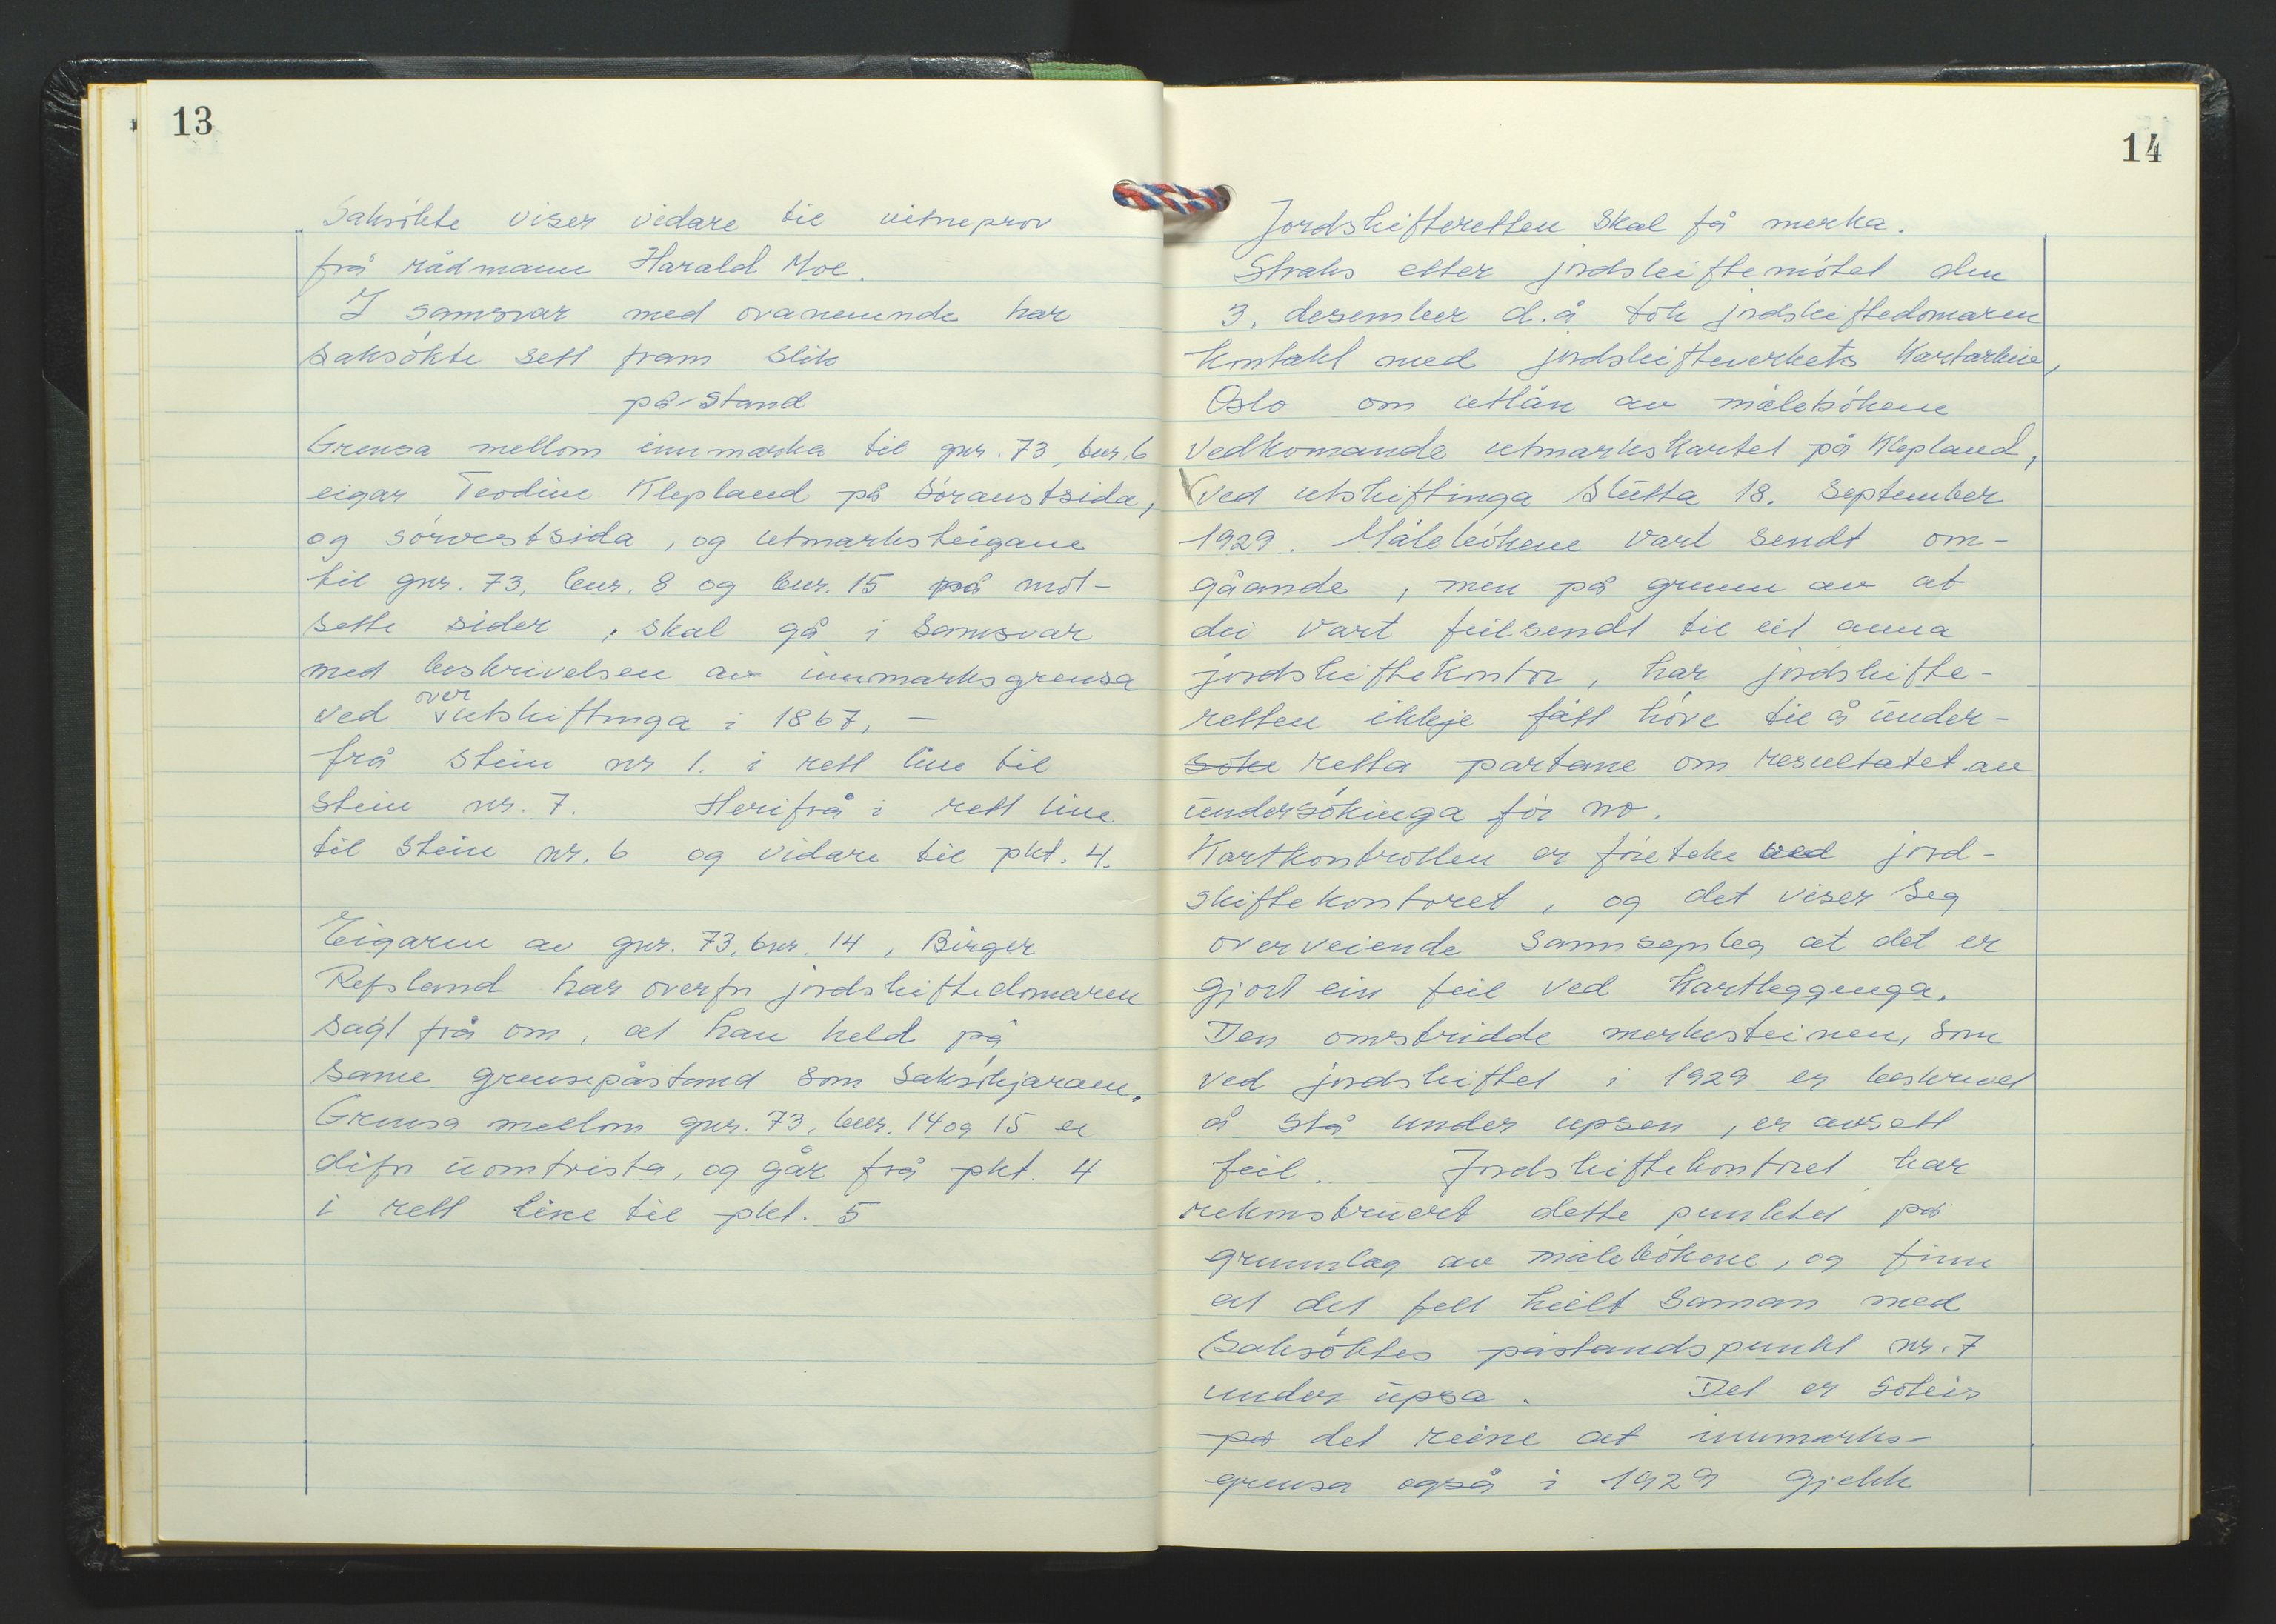 13
Saksökte viser vidare til vitneprov
frå rådmann Harald Moe.
I samsvar med ovanemnde har
saksökte sett fram slik
på-stand
Grensa mellom innmarka til gnr. 73, bnr. 6
eigar Teodine Klepland på söraustsida,
og sörvestsida, og utmarksteigane
til gnr. 73, bnr. 8 og bnr. 15 på mot-
sette sider, skal gå i samsvar
med beskrivelsen av innmarksgrensa
over
ved utskiftinga i 1867, —
frå stein nr 1. i rett line til
stein nr. 7. Herifrå i rett line
til stein nr. 6 og vidare til pkt. 4.
Eigaren av gnr. 73, bnr. 14, Birger
Refsland har overfor jordskiftedomaren
sagt frå om, at han held på
same grensepåstand som saksökjaren.
Grensa mellom gnr. 73, bnr. 14 og 15 er
difor uomtvista, og går frå pkt. 4
i rett line til pkt. 5
14
Jordskifteretten skal få merka.
Straks etter jordskiftemötet den
3. desember d.å tok jordskiftedomaren
kontakt med jordskifteverkets Kartarkiv,
Oslo om utlån av målebökene
vedkomande utmarkskartet på Klepland,
ved utskiftinga slutta 18. september
1929. Målebökene vart sendt om-
gåande, men på grunn av at
dei vart feilsendt til eit anna
jordskiftekontor, har jordskifte-
retten ikkje fått höve til å under-
söke retta partane om resultatet av
undersökinga för no.
Kartkontrollen er företeke ved jord-
skiftekontoret, og det viser seg
overveiende sannsynleg at det er
gjort ein feil ved kartlegginga.
Den omstridde merkesteinen, som
ved jordskiftet i 1929 er beskrevet
å stå under upsen, er avsett
feil. Jordskiftekontoret har
rekonstruert dette punktet på
grunnlag av målebökene, og finn
at det fell heilt saman med
Saksöktes påstandspunkt nr. 7
under upsa. Det er soleis
på det reine at innmarks-
grensa også i 1929 gjekk